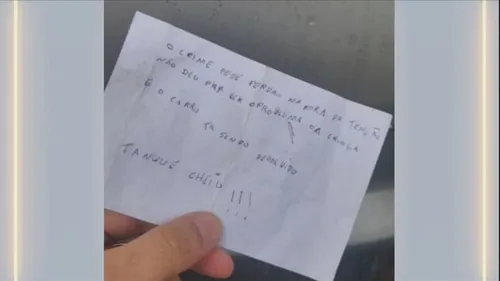 O CRIME PEDE PERDÃO NA HORA DA TENSÃO
NÃO DEU PRA VER O PROBLEMA DA CRIANÇA
E O CARRO
TÁ SENDO DEVOLVIDO
TANQUE CHEIO!!!